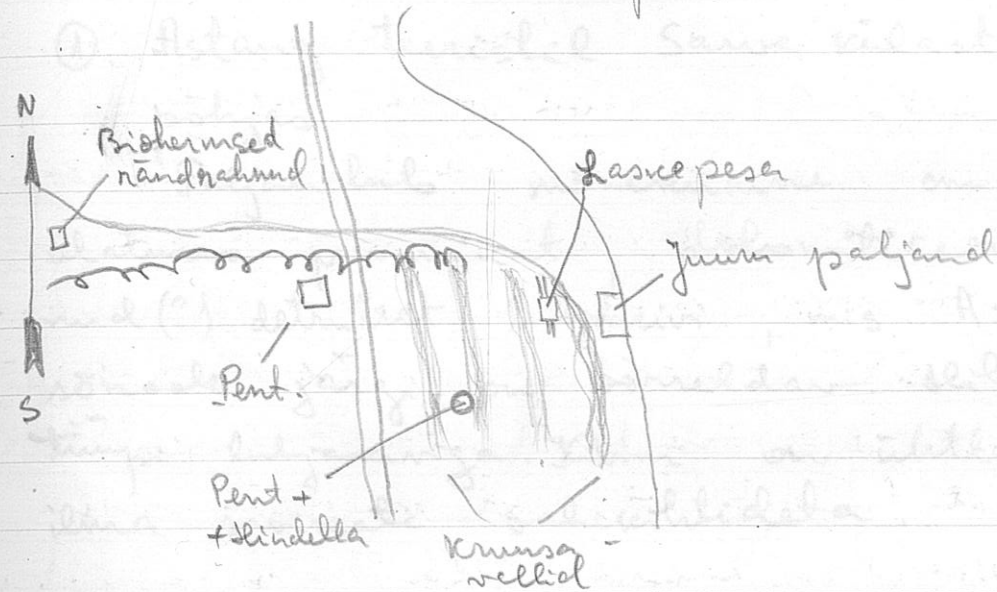 N
Biohermsed
rändrahnud
Laskepesa
Juuru paljand
Pent.
S
Pent +
+ Hindella
Kruusa-
vallid